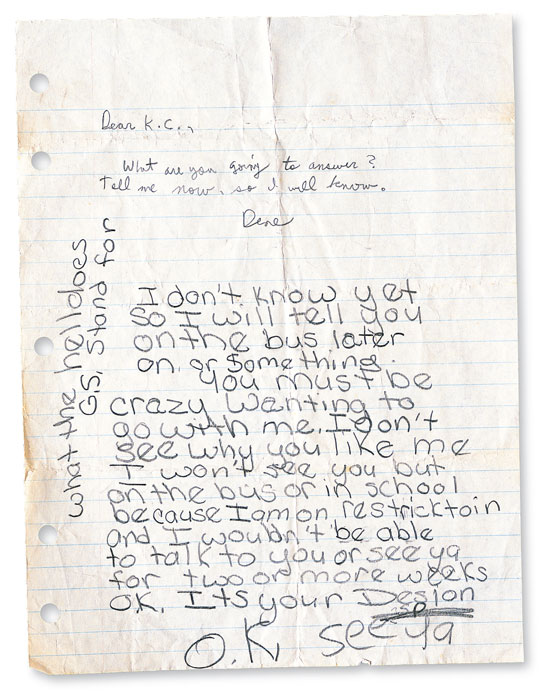 Dear K.C.,
What are you going to answer?
Tell me now, so I will know.
Dene
what the hell does
G.S. Stand for
I don't know yet
So I will tell you
on the bus later
on or something.
You must be
crazy wanting to
go with me. I don't
see why you like me
I won't see you but
on the bus or in school
because I am on restricktoin
and I wouldn't be able
to talk to you or see ya
for two or more weeks
OK. Its your Desion
sp
O.K, see ya